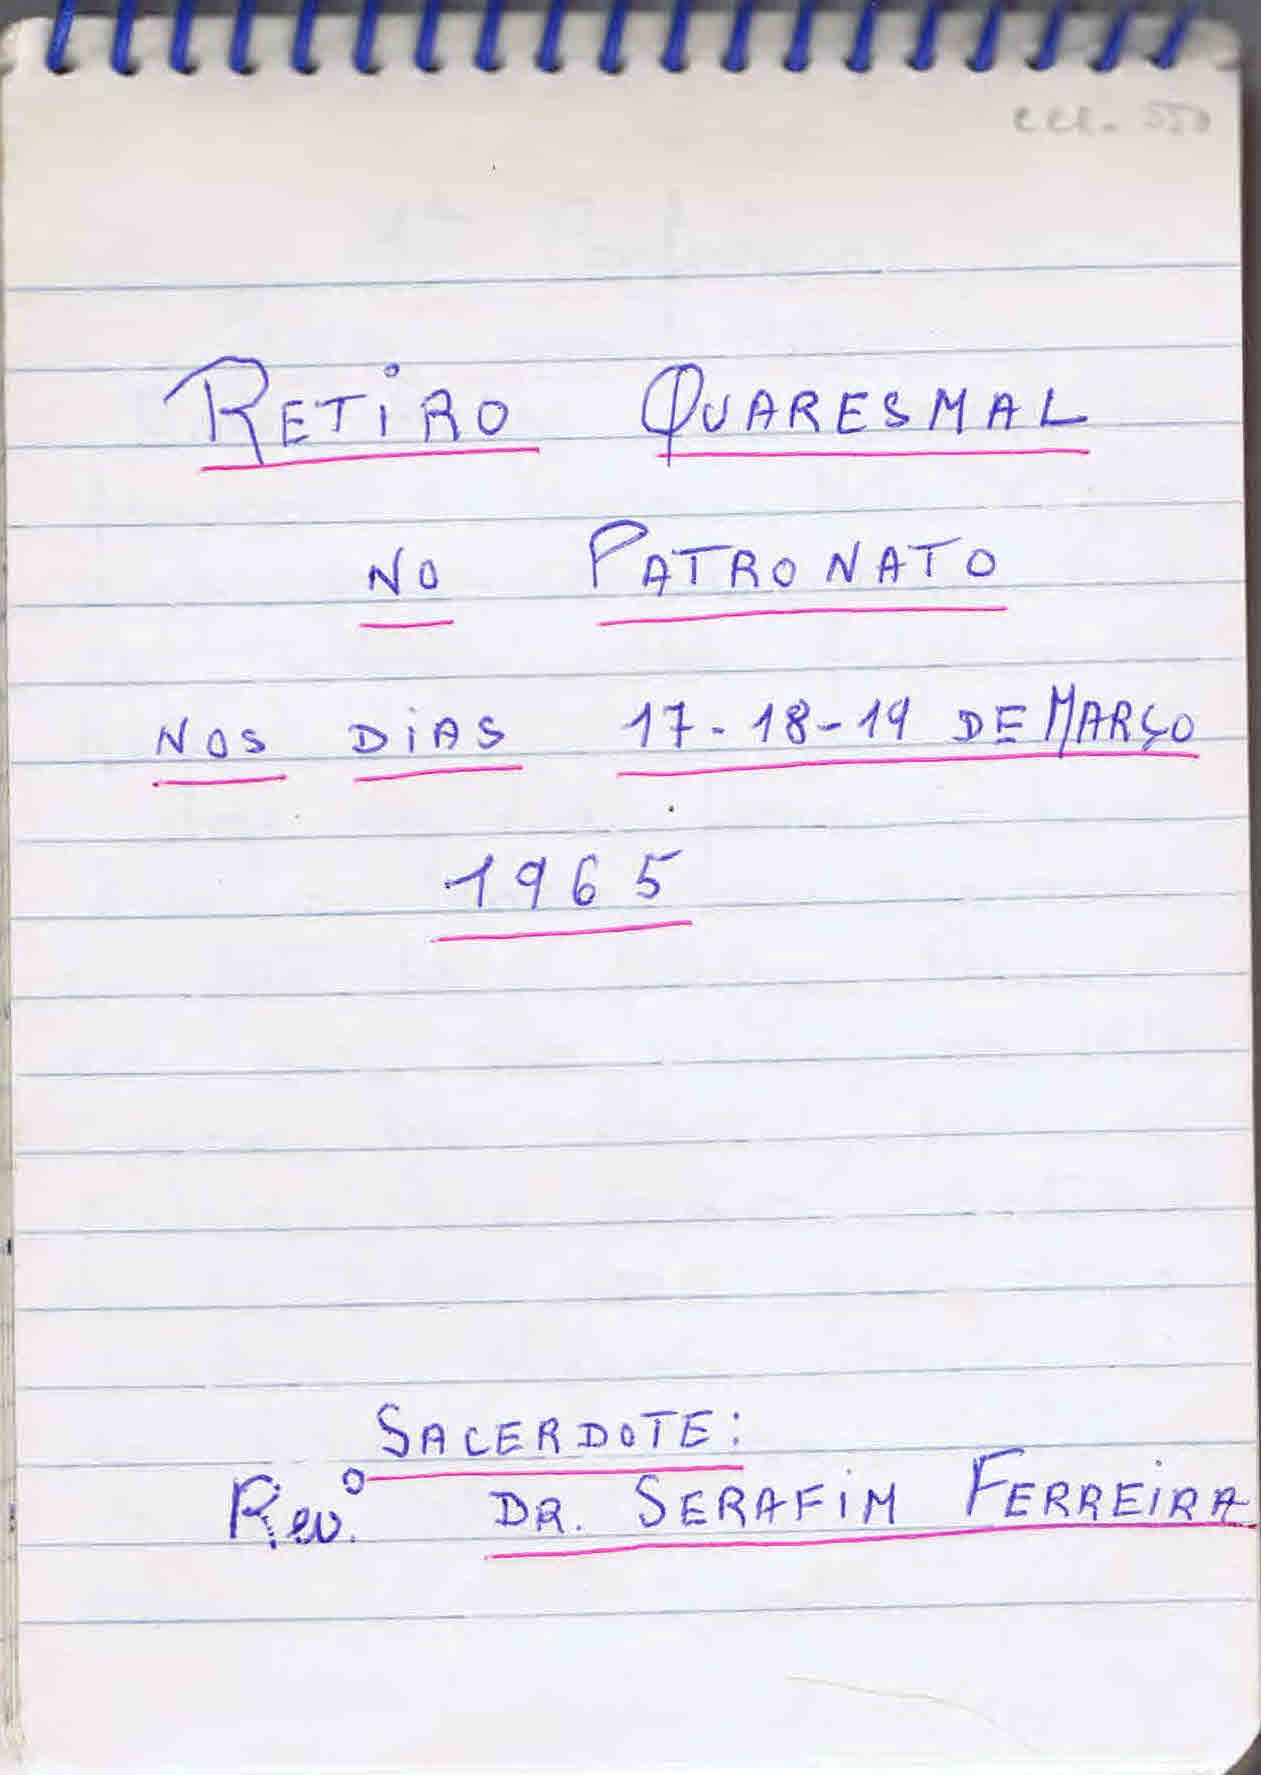 RETIRO QUARESMAL
NO PATRONATO
NOS DIAS 17-18-19 DE MARÇO
1965
SACERDOTE:
Rev.º DR. SERAFIM FERREIRA